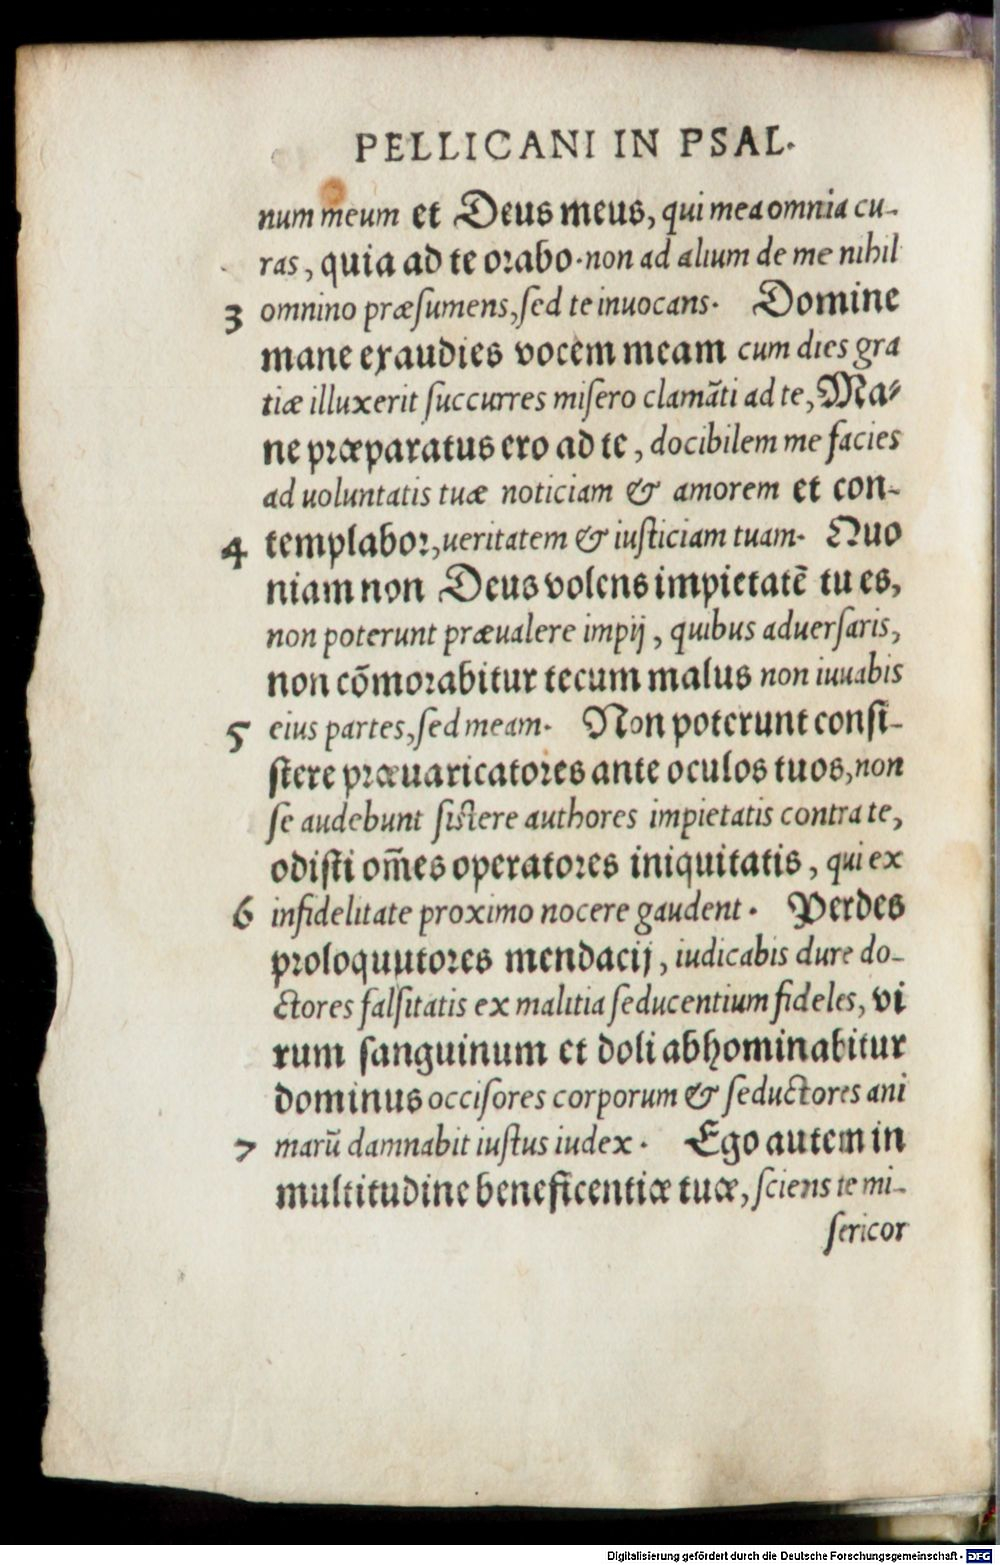 PELLICANI IN PSAL.
num meum et Deus meus, qui mea omnia cu-
ras, quia ad te orabo. non ad alium de me nihil
3 omnino præsumens, sed te inuocans. Domine
mane exaudies vocem meam cum dies gra
tiæ illuxerit succurres misero clamãti ad te, Ma⸗
ne præparatus ero ad te, docibilem me facies
ad uoluntatis tuæ noticiam & amorem et con-
4 templabor, ueritatem & iusticiam tuam. Quo
niam non Deus volens impietatẽ tu es,
non poterunt præualere impij, quibus aduersaris,
non cõmorabitur tecum malus non iuuabis
5 eius partes, sed meam. Non poterunt consi-
stere præuaricatores ante oculos tuos, non
se audebunt sistere authores impietatis contra te,
odisti om̃es operatores iniquitatis, qui ex
6 infidelitate proximo nocere gaudent. Perdes
proloquutores mendacij, iudicabis dure do-
ctores falsitatis ex malitia seducentium fideles, vi
rum sanguinum et doli abhominabitur
dominus occisores corporum & seductores ani
7 marũ damnabit iustus iudex. Ego autem in
multitudine beneficentiæ tuæ, sciens te mi-
sericor
Digitalisierung gefördert durch die Deutsche Forschungsgemeinschaft - DFG